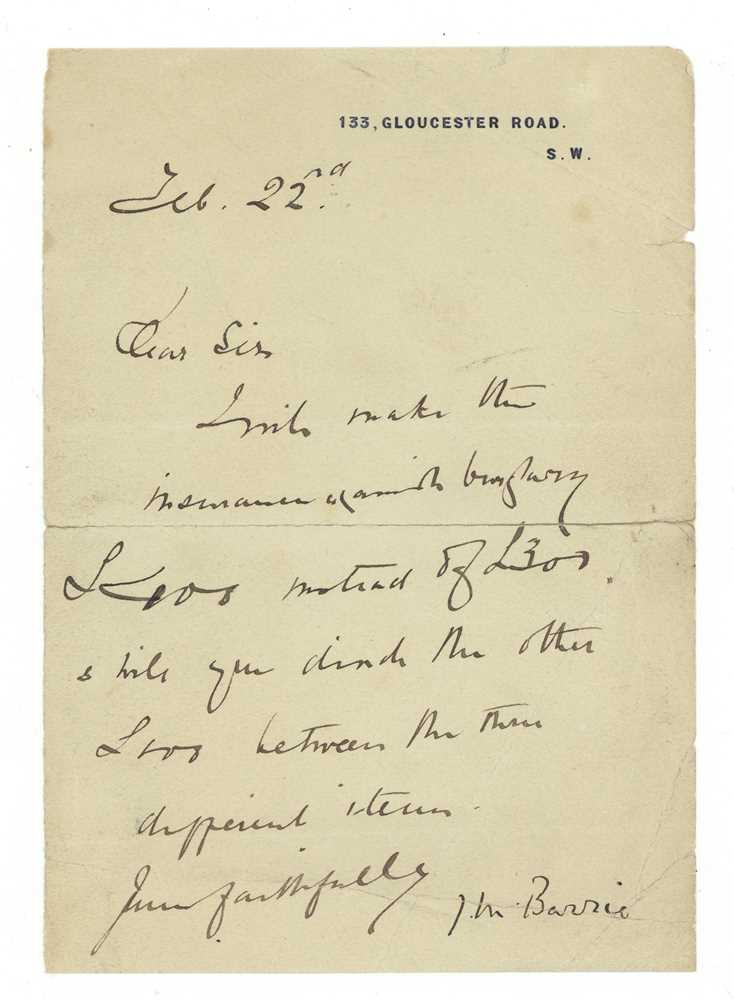 133, GLOUCESTER ROAD.
S. W.
Feb. 22nd.
Dear Sir
I will make the
insurance against burglary
£400 instead of £300.
& will you divide the other
£100 between the three
different items.
Yours faithfully
J. M. Barrie